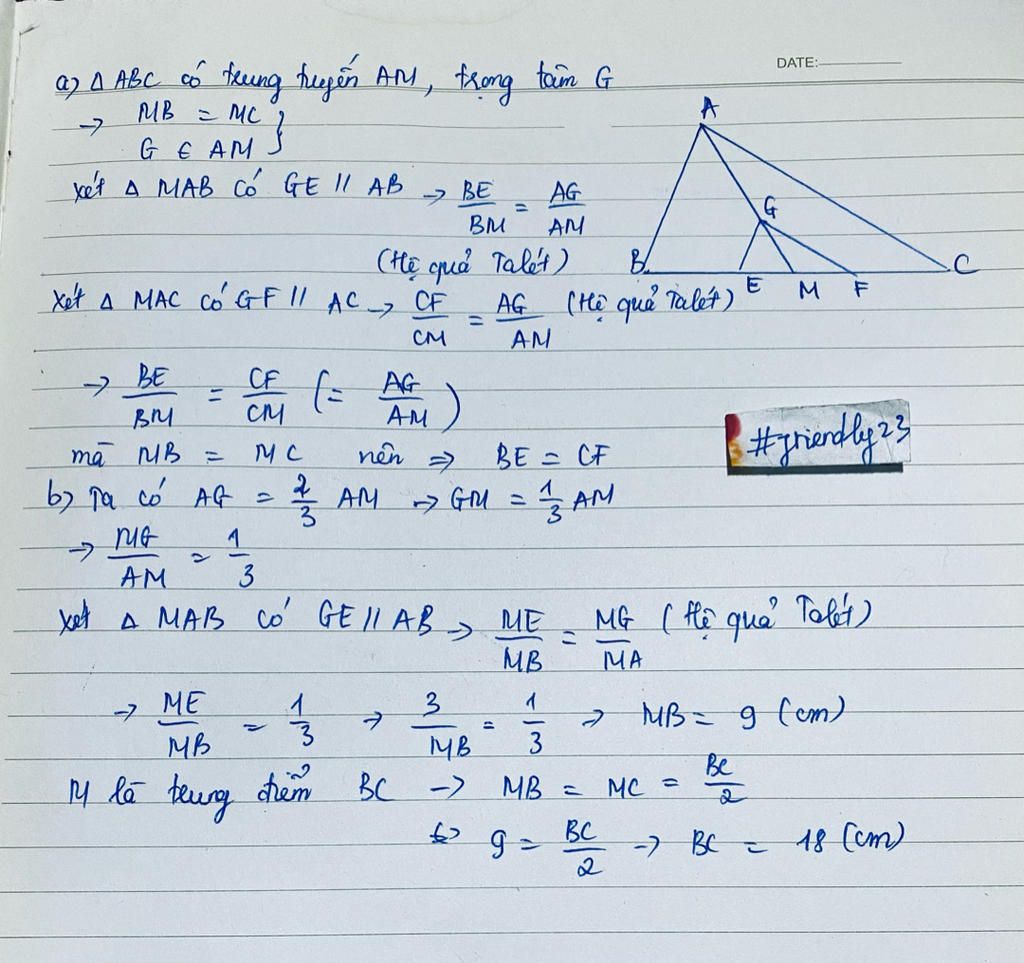 DATE:
a) Δ ABC có trung tuyến AM, trọng tâm G
→ MB = MC }
G ∈ AM }
Xét Δ MAB có GE // AB → BE/BM = AG/AM
(Hệ quả Talét)
Xét Δ MAC có GF // AC → CF/CM = AG/AM (Hệ quả Talét)
→ BE/BM = CF/CM (= AG/AM)
mà MB = MC nên ⇒ BE = CF
b) Ta có AG = 2/3 AM → GM = 1/3 AM
→ MG/AM = 1/3
Xét Δ MAB có GE // AB → ME/MB = MG/MA (Hệ quả Talét)
→ ME/MB = 1/3 → 3/MB = 1/3 → MB = 9 (cm)
M là trung điểm BC → MB = MC = BC/2
⇔ 9 = BC/2 → BC = 18 (cm)
A
G
B
E
M
F
C
#friendly23